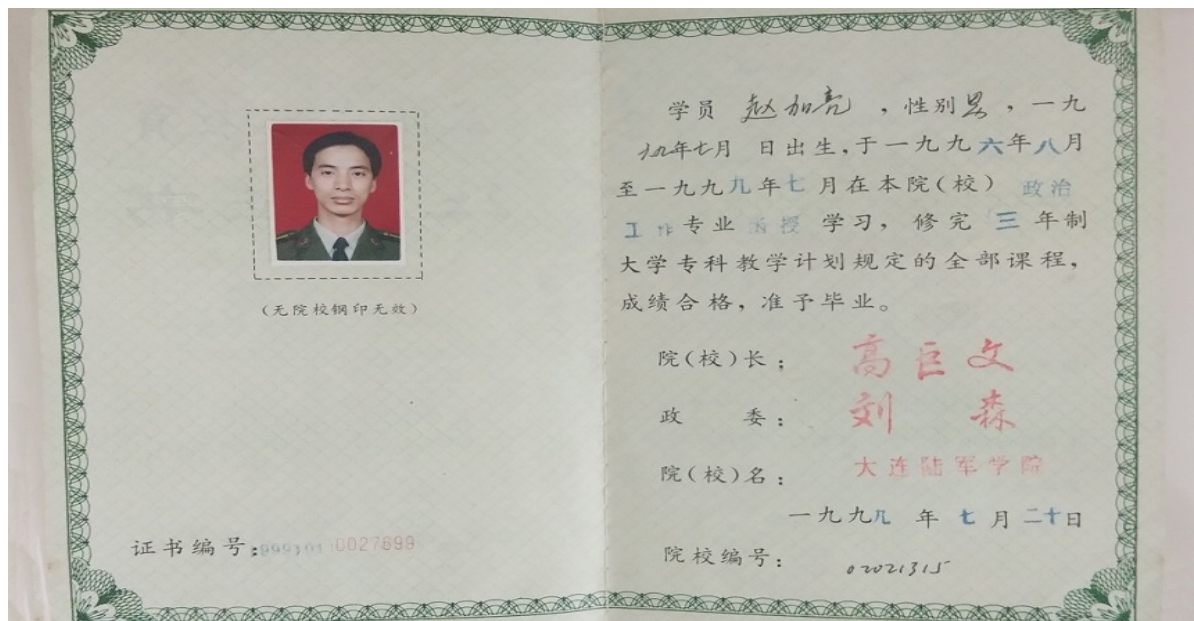 (无院校钢印无效)
证书编号:0027699
学员 赵加亮 ,性别男,一九
年七月 日出生,于一九九六年八月
至一九九九年七月在本院(校) 政治
工作专业 函授 学习, 修完 三 年制
大学专科教学计划规定的全部课程,
成绩合格,准予毕业。
院(校)长: 高巨文
政 委: 刘 森
院(校)名: 大连陆军学院
一九九九 年 七 月 二十日
院校编号: 02021315